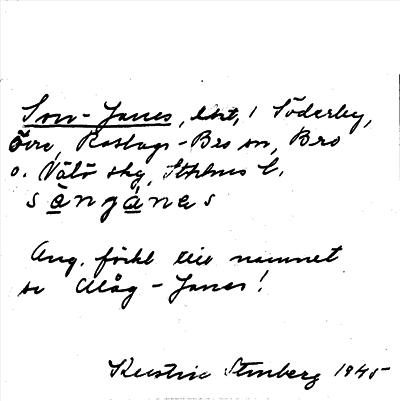 Son-Janes, lht, i Söderby,
Övre, Roslags-Bro sn, Bro
o. Vätö skg, Sthlms l.
sångánes
Ang. förkl till namnet
se Måg-Janes!
Kerstin Stenberg 1945